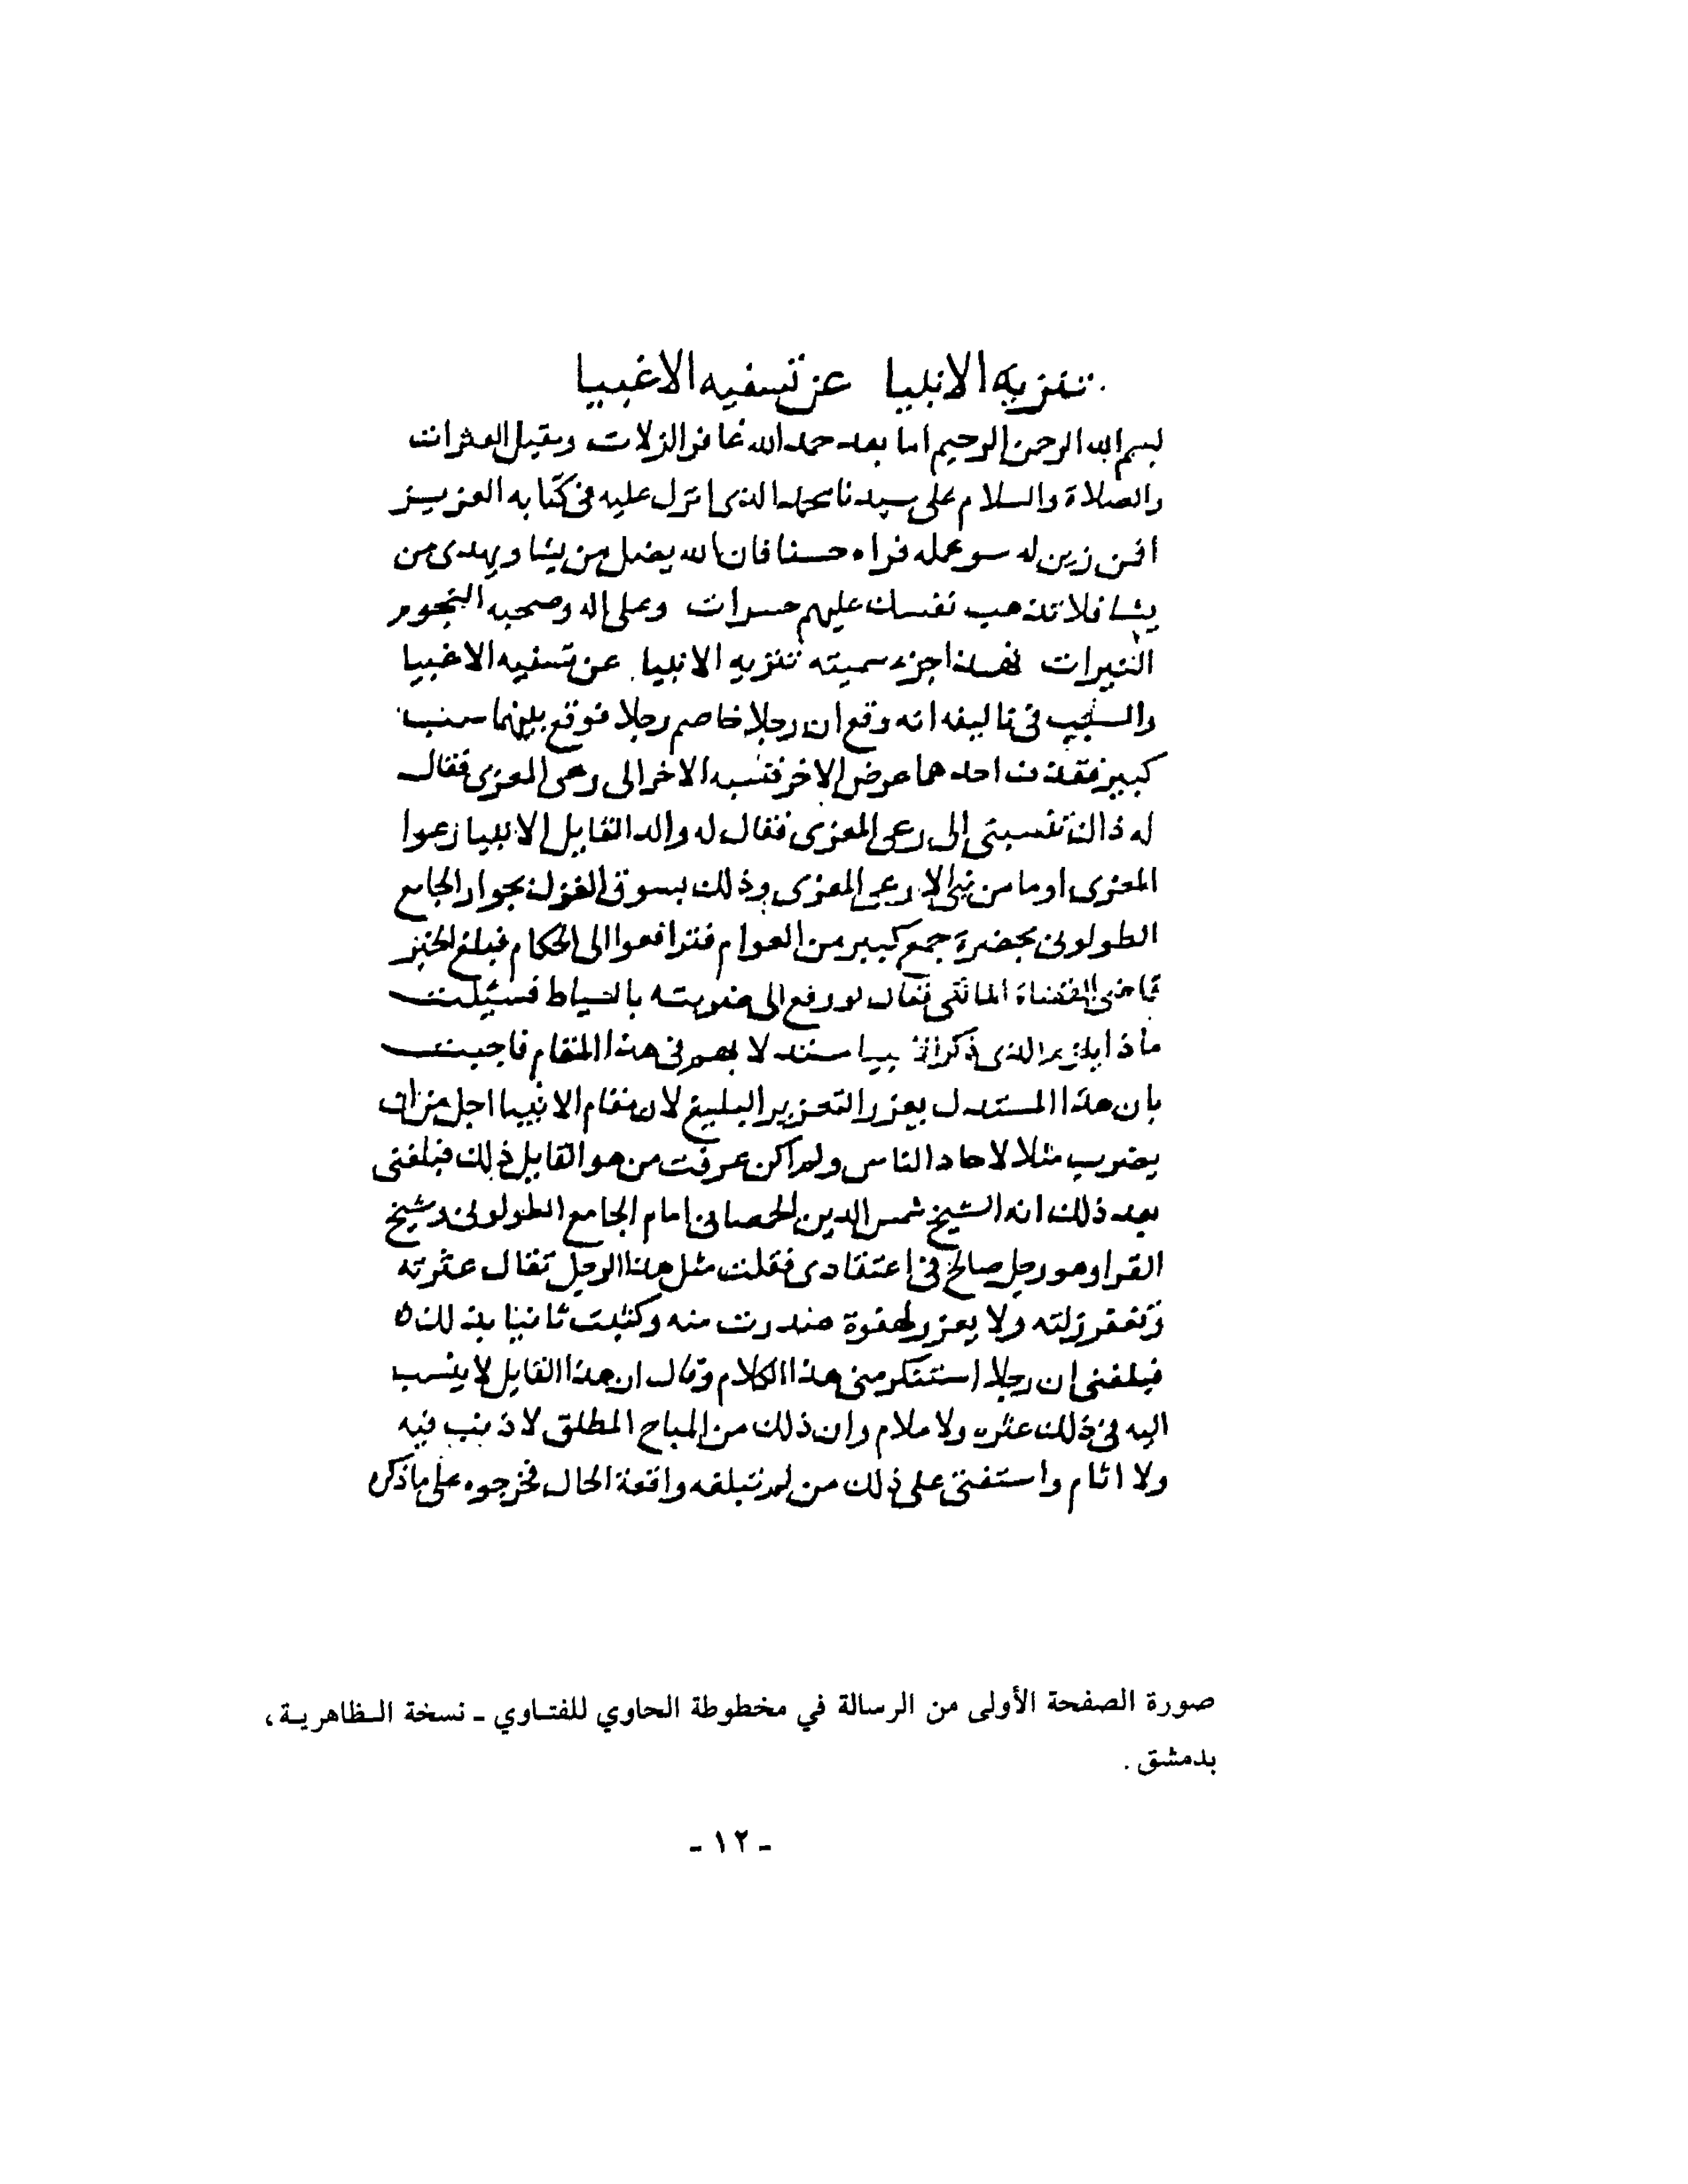 تنزيه الانبيا عن تسفيه الاغبيا
بسم الله الرحمن الرحيم اما بعد حمد الله غافر الزلات ومقيل العثرات
والصلاة والسلام على سيدنا محمد الذى انزل عليه فى كتابه العزيز
افمن زين له سو عمله فراه حسنا فان الله يضل من يشا ويهدى من
يشا فلا تذهب نفسك عليهم حسرات وعلى اله وصحبه النجوم
النيرات فهذا جزء سميته تنزيه الانبيا عن تسفيه الاغبيا
والسبب فى تاليفه انه وقع ان رجلا خاصم رجلا فوقع بينهما سب
كبير فقذف احدهما عرض الاخر فنسبه الاخر الى رعى المعزى فقال
له ذاك تنسبنى الى رعى المعزى فقال له والد القايل الانبيا رعوا
المعزى او ما من نبى الا رعى المعزى وذلك بسوق الغزل بجوار الجامع
الطولونى بحضرة جمع كبير من العوام فترافعوا الى الحكام فبلغ الخبر
قاضى القضاة المالكى فقال لو رفع الى ضربته بالسياط فسئلت
ماذا يلزم الذى ذكر الانبيا مستدلا بهم فى هذا المقام فاجبت
بان هذا المستدل يعزر التعزير البليغ لان مقام الانبيا اجل من ان
يضرب مثلا لاحاد الناس ولم اكن عرفت من هو القايل ذلك فبلغنى
بعد ذلك انه الشيخ شمس الدين الحمصانى امام الجامع الطولونى وشيخ
القرا وهو رجل صالح فى اعتقادى فقلت مثل هذا الرجل تقال عثرته
وتغفر زلته ولا يعزر لهفوة صدرت منه وكتبت ثانيا بذلك ه
فبلغنى ان رجلا استنكر منى هذا الكلام وقال ان هذا القايل لا ينسب
اليه فى ذلك عثره ولا ملام وان ذلك من المباح المطلق لا ذنب فيه
ولا اثام واستفتى على ذلك من لم تبلغه واقعة الحال فخرجوه على ما ذكره
صورة الصفحة الأولى من الرسالة في مخطوطة الحاوي للفتاوي - نسخة الظاهرية،
بدمشق.
- ١٢ -